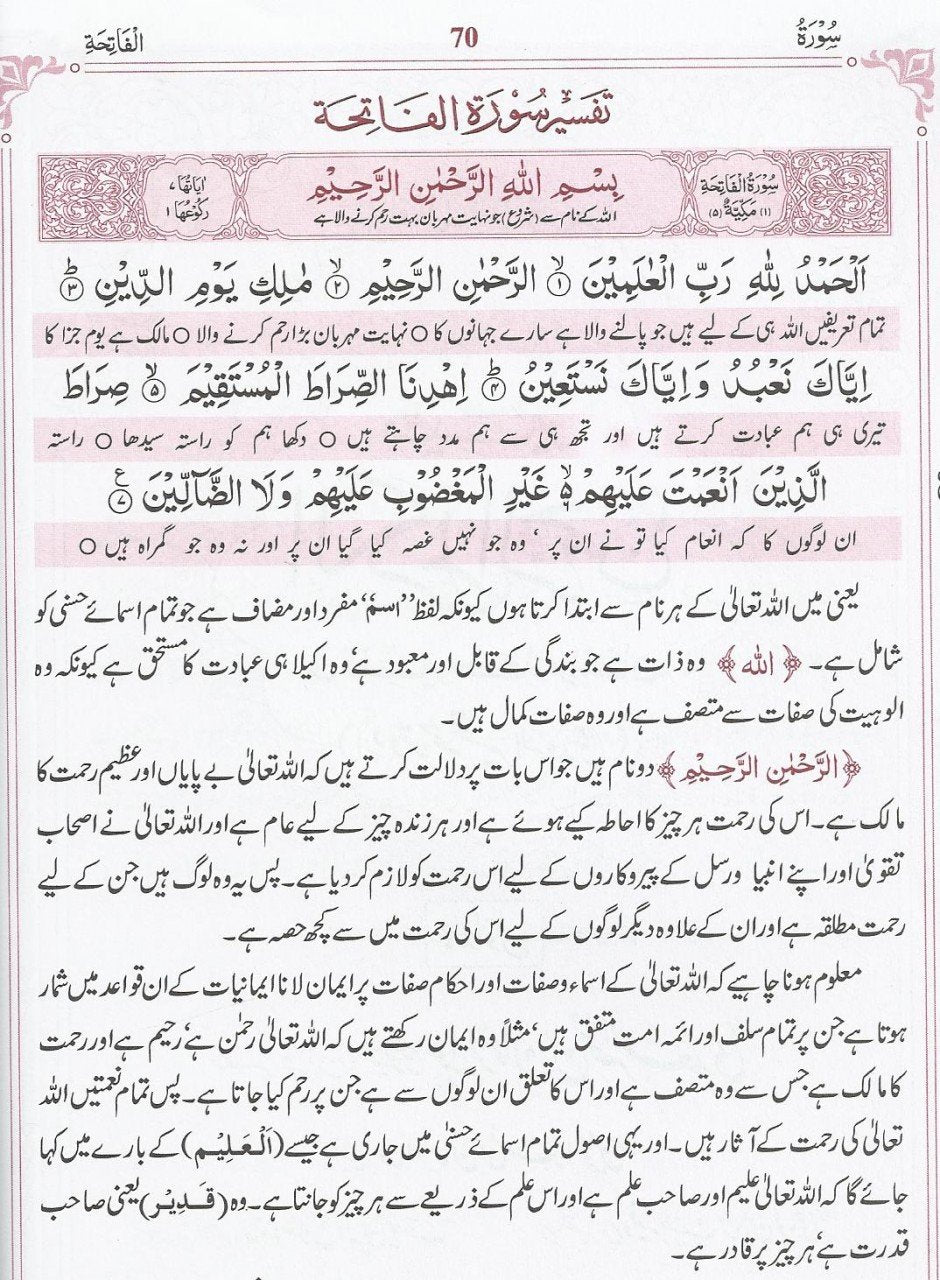 سُوْرَةُ 70 الْفَاتِحَةِ
تفسیر سُوْرَة الفَاتِحَة
سُوْرَةُ الْفَاتِحَةِ بِسْمِ اللّٰهِ الرَّحْمٰنِ الرَّحِيْمِ اٰيَاتُهَا ۷
(۱) مَكِّيَّةٌ (۵) اللہ کے نام سے (شروع) جو نہایت مہربان، بہت رحم کرنے والا ہے رُكُوْعُهَا ۱
اَلْحَمْدُ لِلّٰهِ رَبِّ الْعٰلَمِيْنَ ۙ﴿۱﴾ الرَّحْمٰنِ الرَّحِيْمِ ۙ﴿۲﴾ مٰلِكِ يَوْمِ الدِّيْنِ ؕ﴿۳﴾
تمام تعریفیں اللہ ہی کے لیے ہیں جو پالنے والا ہے سارے جہانوں کا ○ نہایت مہربان بڑا رحم کرنے والا ○ مالک ہے یوم جزا کا
اِيَّاكَ نَعْبُدُ وَاِيَّاكَ نَسْتَعِيْنُ ؕ﴿۴﴾ اِهْدِنَا الصِّرَاطَ الْمُسْتَقِيْمَ ۙ﴿۵﴾ صِرَاطَ
تیری ہی ہم عبادت کرتے ہیں اور تجھ ہی سے ہم مدد چاہتے ہیں ○ دکھا ہم کو راستہ سیدھا ○ راستہ
الَّذِيْنَ اَنْعَمْتَ عَلَيْهِمْ ۙ۬ غَيْرِ الْمَغْضُوْبِ عَلَيْهِمْ وَلَا الضَّآلِّيْنَ ﴿۷﴾ ع
ان لوگوں کا کہ انعام کیا تو نے ان پر ‘ وہ جو نہیں غصہ کیا گیا ان پر اور نہ وہ جو گمراہ ہیں ○
یعنی میں اللہ تعالیٰ کے ہر نام سے ابتدا کرتا ہوں کیونکہ لفظ ’’اسم‘‘ مفرد اور مضاف ہے جو تمام اسمائے حسنیٰ کو
شامل ہے۔ ﴿اللّٰه﴾ وہ ذات ہے جو بندگی کے قابل اور معبود ہے‘ وہ اکیلا ہی عبادت کا مستحق ہے کیونکہ وہ
الوہیت کی صفات سے متصف ہے اور وہ صفات کمال ہیں۔
﴿الرَّحْمٰنِ الرَّحِيْمِ﴾ دو نام ہیں جو اس بات پر دلالت کرتے ہیں کہ اللہ تعالیٰ بے پایاں اور عظیم رحمت کا
مالک ہے۔ اس کی رحمت ہر چیز کا احاطہ کیے ہوئے ہے اور ہر زندہ چیز کے لیے عام ہے اور اللہ تعالیٰ نے اصحاب
تقویٰ اور اپنے انبیا ورسل کے پیروکاروں کے لیے اس رحمت کو لازم کر دیا ہے۔ پس یہ وہ لوگ ہیں جن کے لیے
رحمت مطلقہ ہے اور ان کے علاوہ دیگر لوگوں کے لیے اس کی رحمت میں سے کچھ حصہ ہے۔
معلوم ہونا چاہیے کہ اللہ تعالیٰ کے اسماء وصفات اور احکام صفات پر ایمان لانا ایمانیات کے ان قواعد میں شمار
ہوتا ہے جن پر تمام سلف اور ائمہ امت متفق ہیں‘ مثلاً وہ ایمان رکھتے ہیں کہ اللہ تعالیٰ رحمٰن ہے‘ رحیم ہے اور رحمت
کا مالک ہے جس سے وہ متصف ہے اور اس کا تعلق ان لوگوں سے ہے جن پر رحم کیا جاتا ہے۔ پس تمام نعمتیں اللہ
تعالیٰ کی رحمت کے آثار ہیں۔ اور یہی اصول تمام اسمائے حسنیٰ میں جاری ہے جیسے (اَلْعَلِيْم) کے بارے میں کہا
جائے گا کہ اللہ تعالیٰ علیم اور صاحب علم ہے اور اس علم کے ذریعے سے ہر چیز کو جانتا ہے۔ وہ (قَدِيْر) یعنی صاحب
قدرت ہے‘ ہر چیز پر قادر ہے۔